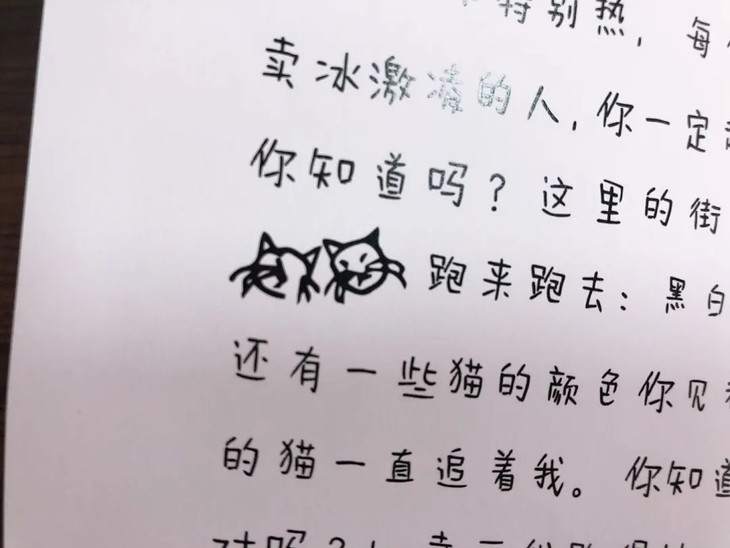 特别热，每
卖冰激凌的人，你一定
你知道吗？这里的街
跑来跑去：黑白
还有一些猫的颜色你见
的猫一直追着我。你知道
对吗？